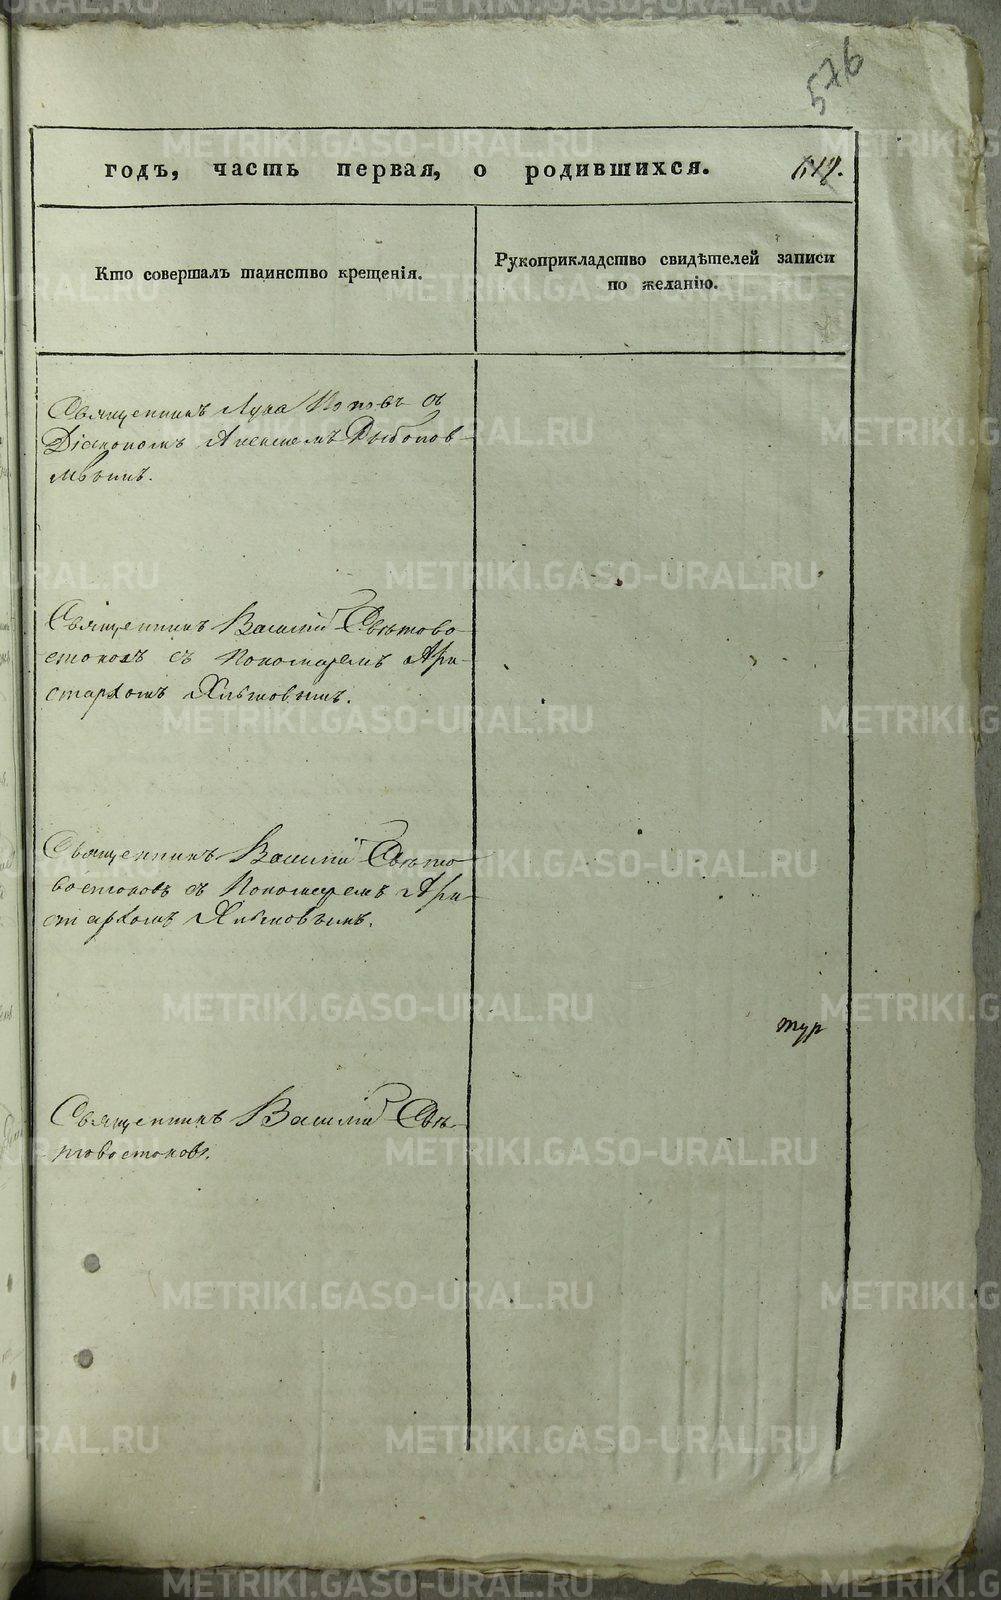 576
годъ, часть первая, о родившихся.
Кто совершалъ таинство крещенія.
Рукоприкладство свидѣтелей записи
по желанію.
Священникъ Лука Поповъ съ
Діакономъ Алексѣемъ
Священникъ Василій Свѣтово-
стоковъ съ Пономаремъ Ари-
стархомъ Хлыновымъ.
Священникъ Василій Свѣто-
востоковъ съ Пономаремъ Ари-
стархомъ Хлыновымъ.
тур
Священникъ Василій Свѣ-
товостоковъ.
METRIKI.GASO-URAL.RU